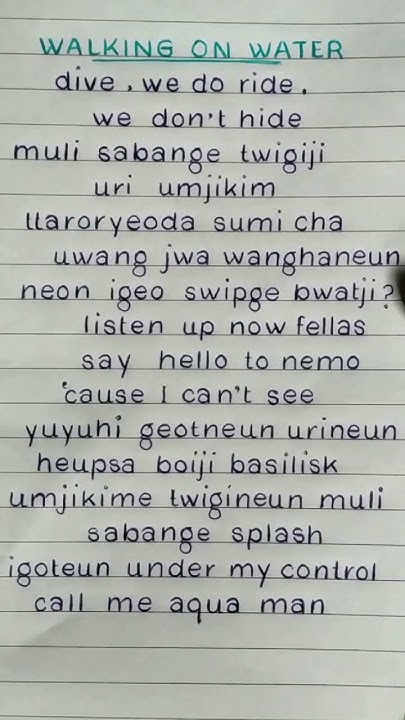 WALKING ON WATER
dive, we do ride,
we don't hide
muli sabange twigiji
uri umjikim
llaroryeoda sumi cha
uwang jwa wanghaneun
neon igeo swipge bwatji?
listen up now fellas
say hello to nemo
'cause I can't see
yuyuhi geotneun urineun
heupsa boiji basilisk
umjikime twigineun muli
sabange splash
igoteun under my control
call me aqua man